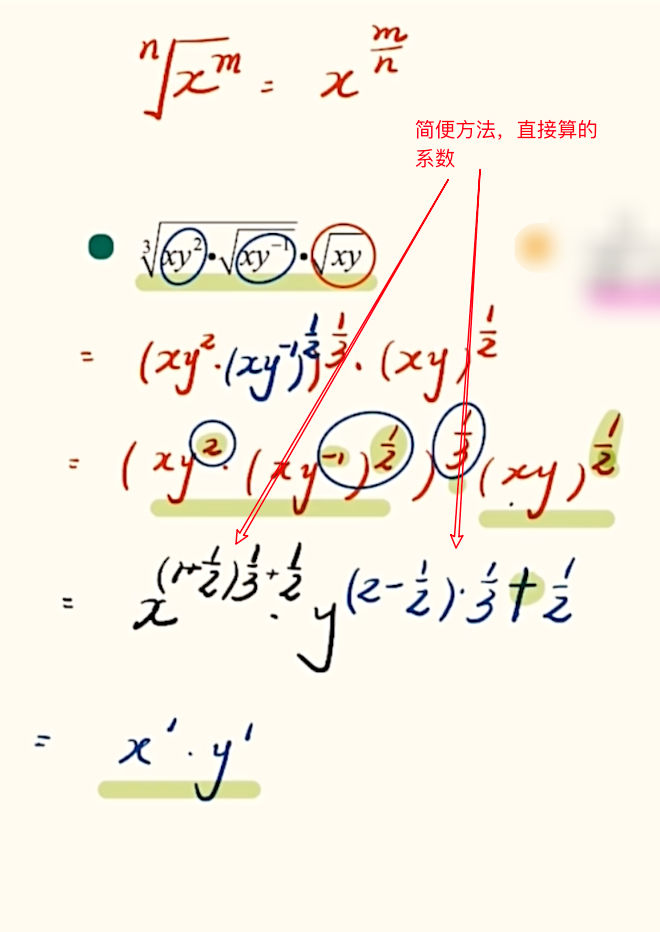 ⁿ√(x^m) = x^(m/n)
简便方法，直接算的
系数
∛(xy²•√(xy⁻¹))•√(xy)
= (xy²·(xy⁻¹)^(1/2))^(1/3)·(xy)^(1/2)
= (xy²·(xy⁻¹)^(1/2))^(1/3)(xy)^(1/2)
= x^((1+1/2)1/3+1/2)·y^((2-1/2)·1/3+1/2)
= x¹·y¹